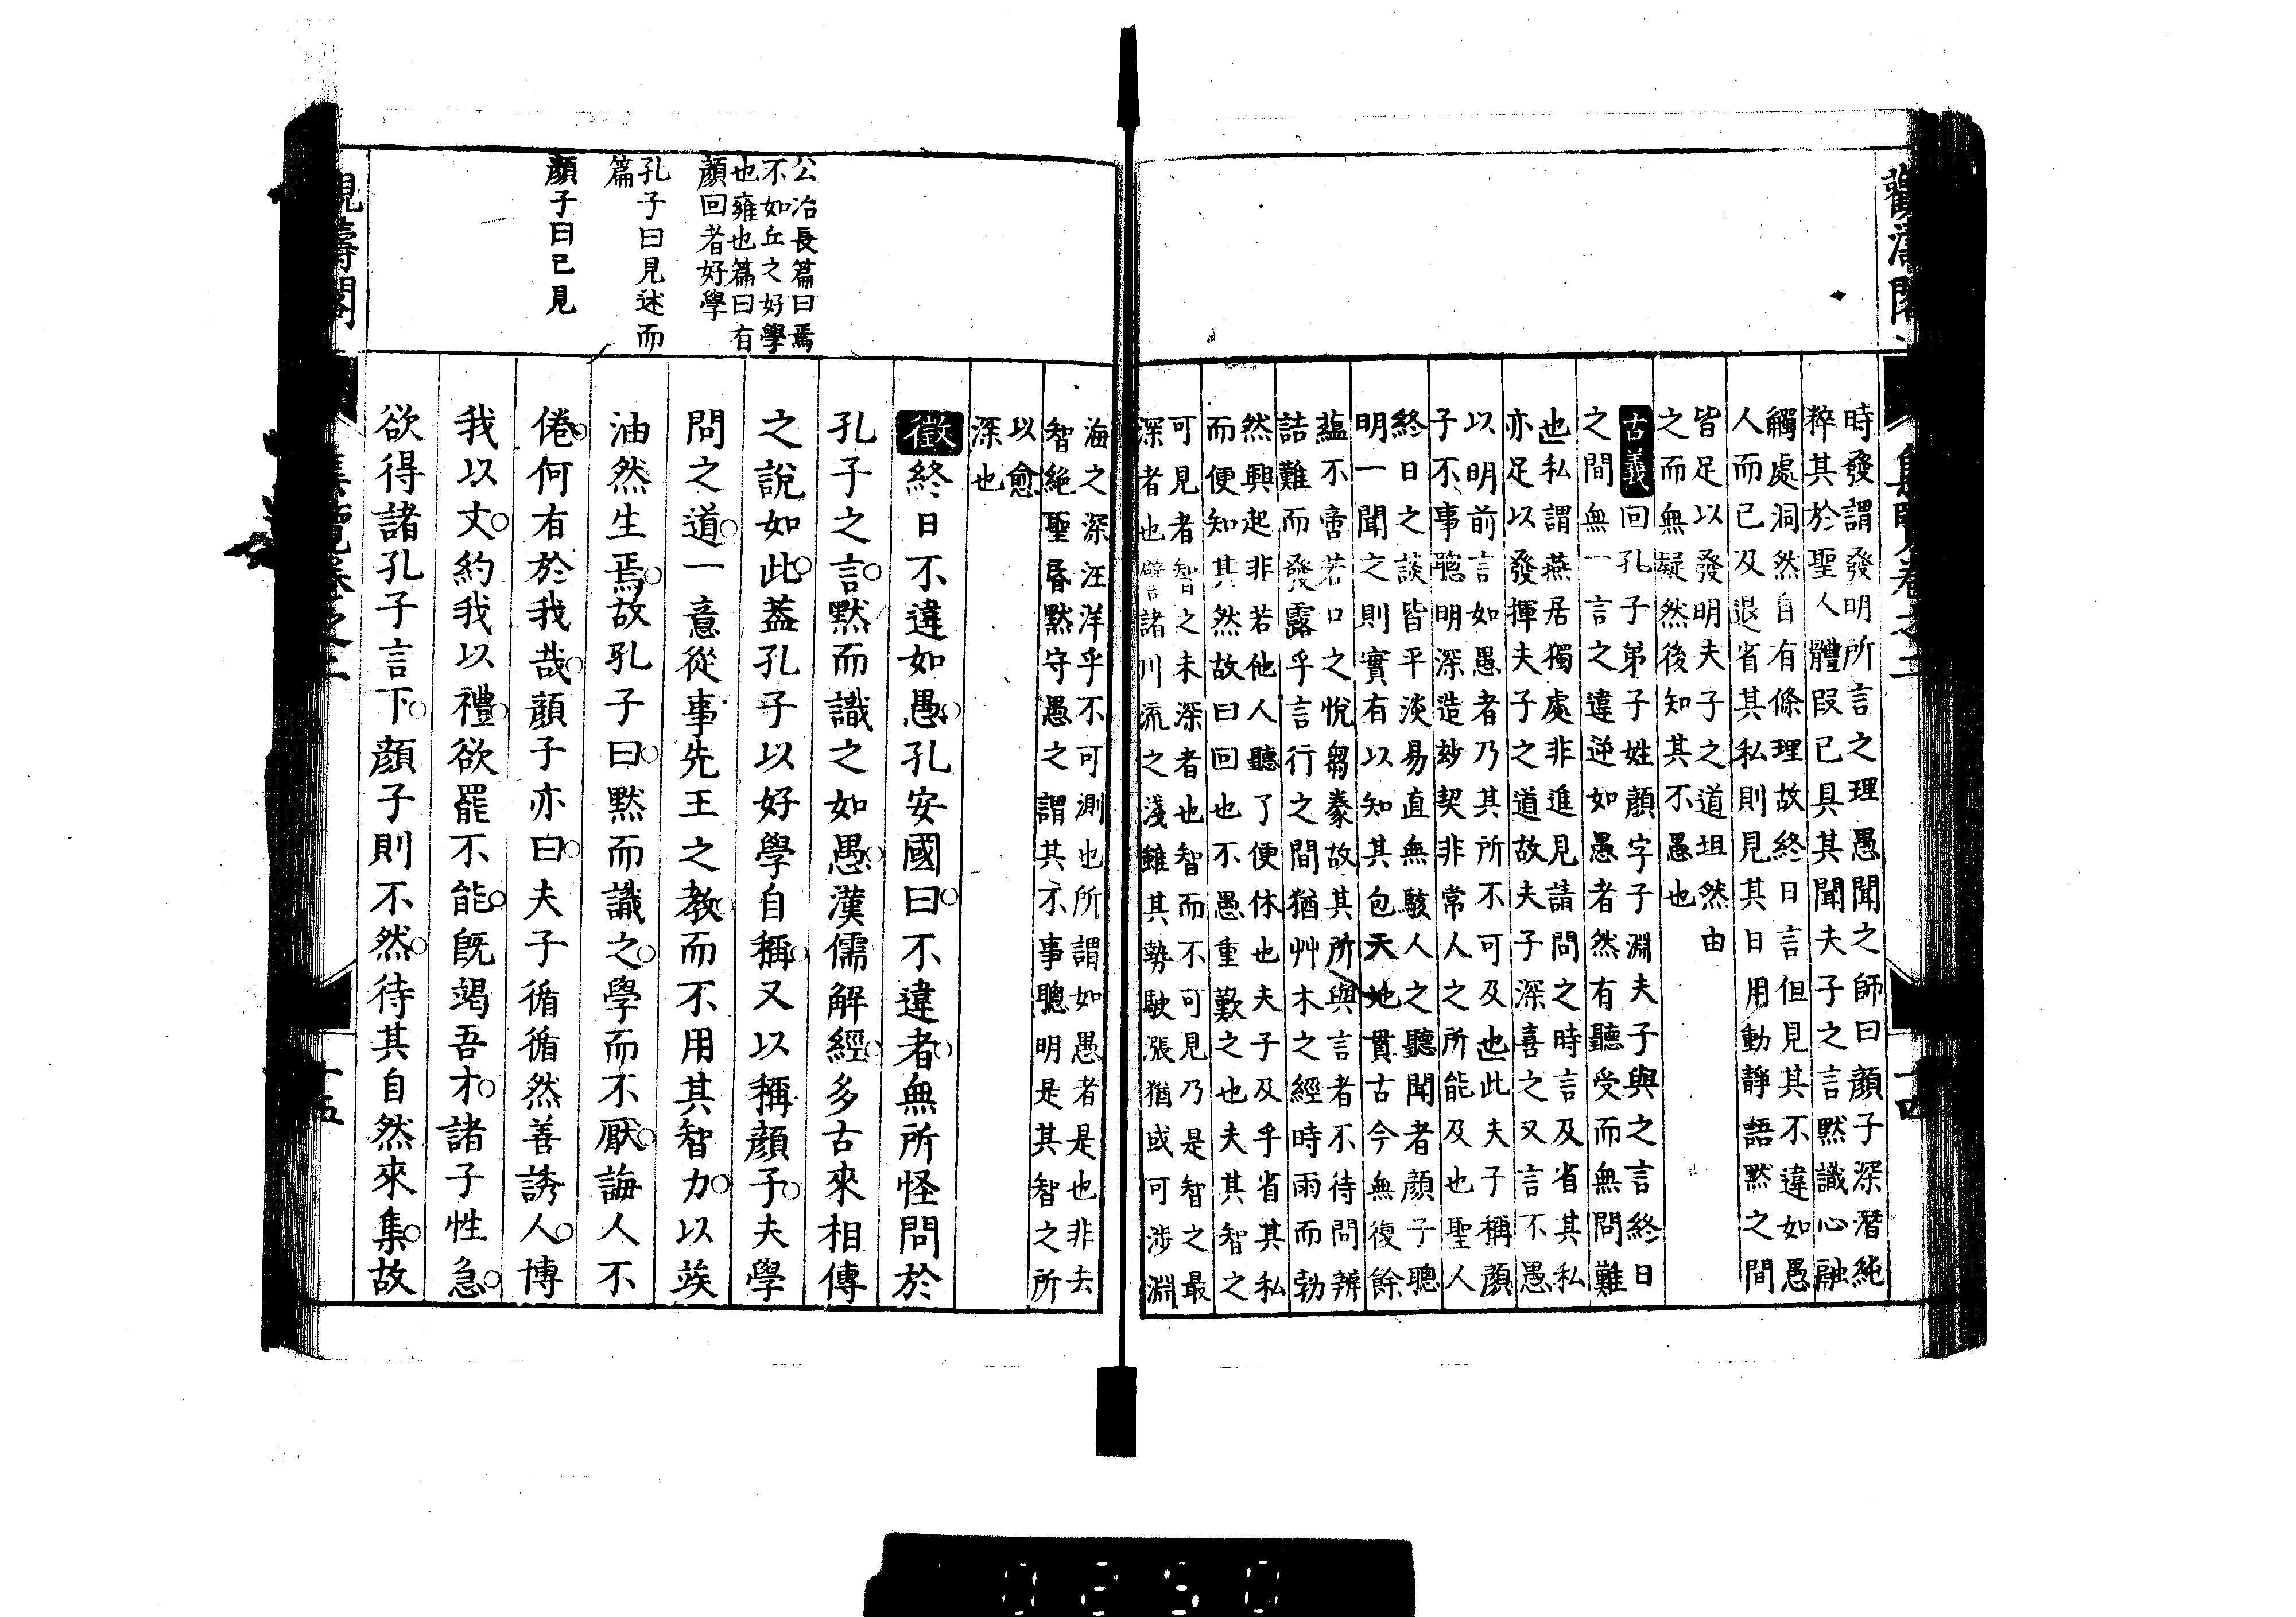 觀濤閣
時發謂發明所言之理愚聞之師曰顏子深潛純
粹其於聖人體段已具其聞夫子之言默識心融
觸處洞然自有條理故終日言但見其不違如愚
人而已及退省其私則見其日用動靜語默之間
皆足以發明夫子之道坦然由
之而無疑然後知其不愚也
古義回孔子弟子姓顏字子淵夫子與之言終日
之間無一言之違逆如愚者然有聽受而無問難
也私謂燕居獨處非進見請問之時言及省其私
亦足以發揮夫子之道故夫子深喜之又言不愚
以明前言如愚者乃其所不可及也此夫子稱顏
子不事聰明深造妙契非常人之所能及也聖人
終日之談皆平淡易直無駭人之聽聞者顏子聰
明一聞之則實有以知其包天地貫古今無復餘
蘊不啻若口之悅芻豢故其所與言者不待問辨
詰難而發露乎言行之間猶艸木之經時雨而勃
然興起非若他人聽了便休也夫子及乎省其私
而便知其然故曰回也不愚重歎之也夫其智之
可見者智之未深者也智而不可見乃是智之最
深者也譬諸川流之淺雖其勢駛漲猶或可涉淵
海之深汪洋乎不可測也所謂如愚者是也非去
智絕聖昏默守愚之謂其不事聰明是其智之所
以愈
深也
徵終日不違如愚孔安國曰不違者無所怪問於
孔子之言默而識之如愚漢儒解經多古來相傳
之說如此蓋孔子以好學自稱又以稱顏子夫學
問之道一意從事先王之教而不用其智力以竢
油然生焉故孔子曰默而識之學而不厭誨人不
倦何有於我哉顏子亦曰夫子循循然善誘人博
我以文約我以禮欲罷不能既竭吾才諸子性急
欲得諸孔子言下顏子則不然待其自然來集故
公冶長篇曰焉
不如丘之好學
也雍也篇曰有
顏回者好學
孔子曰見述而
篇
顏子曰已見
集覽卷之二
0250